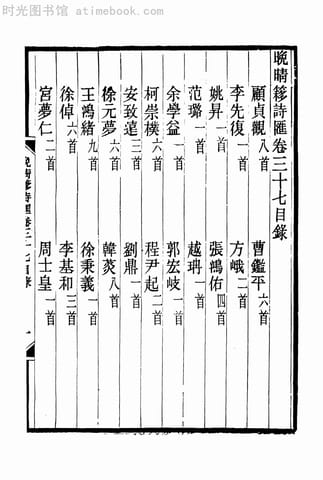 时光图书馆 — atimebook.com
晚晴簃詩匯卷三十七目錄
顧貞觀八首 曹鑑平六首
李先復一首 方峨二首
姚昇一首 張鴻佑四首
范璐一首 越珃一首
余學益一首 郭宏岐一首
柯崇樸六首 程尹起二首
安致遠三首 劉鼎一首
徐元夢六首 韓菼八首
王鴻緒九首 徐秉義一首
徐倬六首 李基和三首
宮夢仁二首 周士皇一首
晚晴簃詩匯卷三十七目錄
一